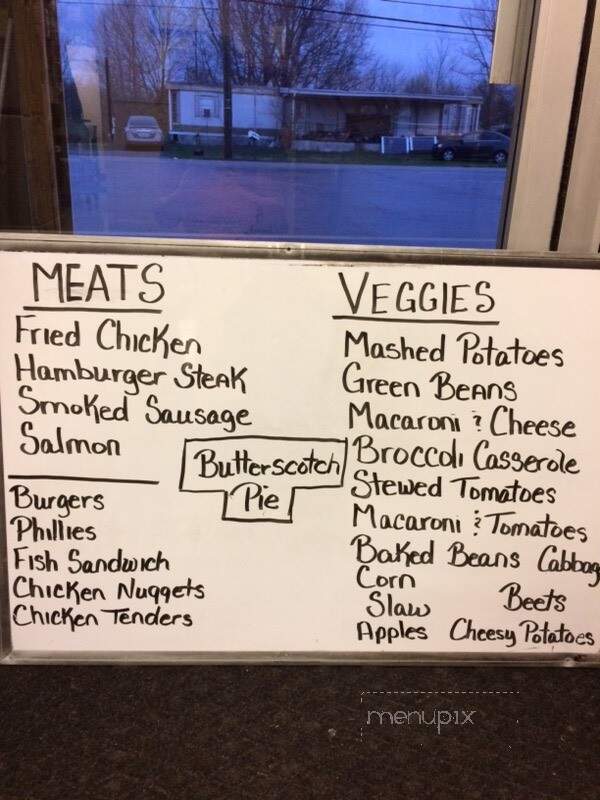 MEATS
Fried Chicken
Hamburger Steak
Smoked Sausage
Salmon
Burgers
Phillies
Fish Sandwich
Chicken Nuggets
Chicken Tenders
Butterscotch
Pie
VEGGIES
Mashed Potatoes
Green Beans
Macaroni & Cheese
Broccoli Casserole
Stewed Tomatoes
Macaroni & Tomatoes
Baked Beans Cabbag
Corn
Slaw Beets
Apples Cheesy Potatoes
menupix